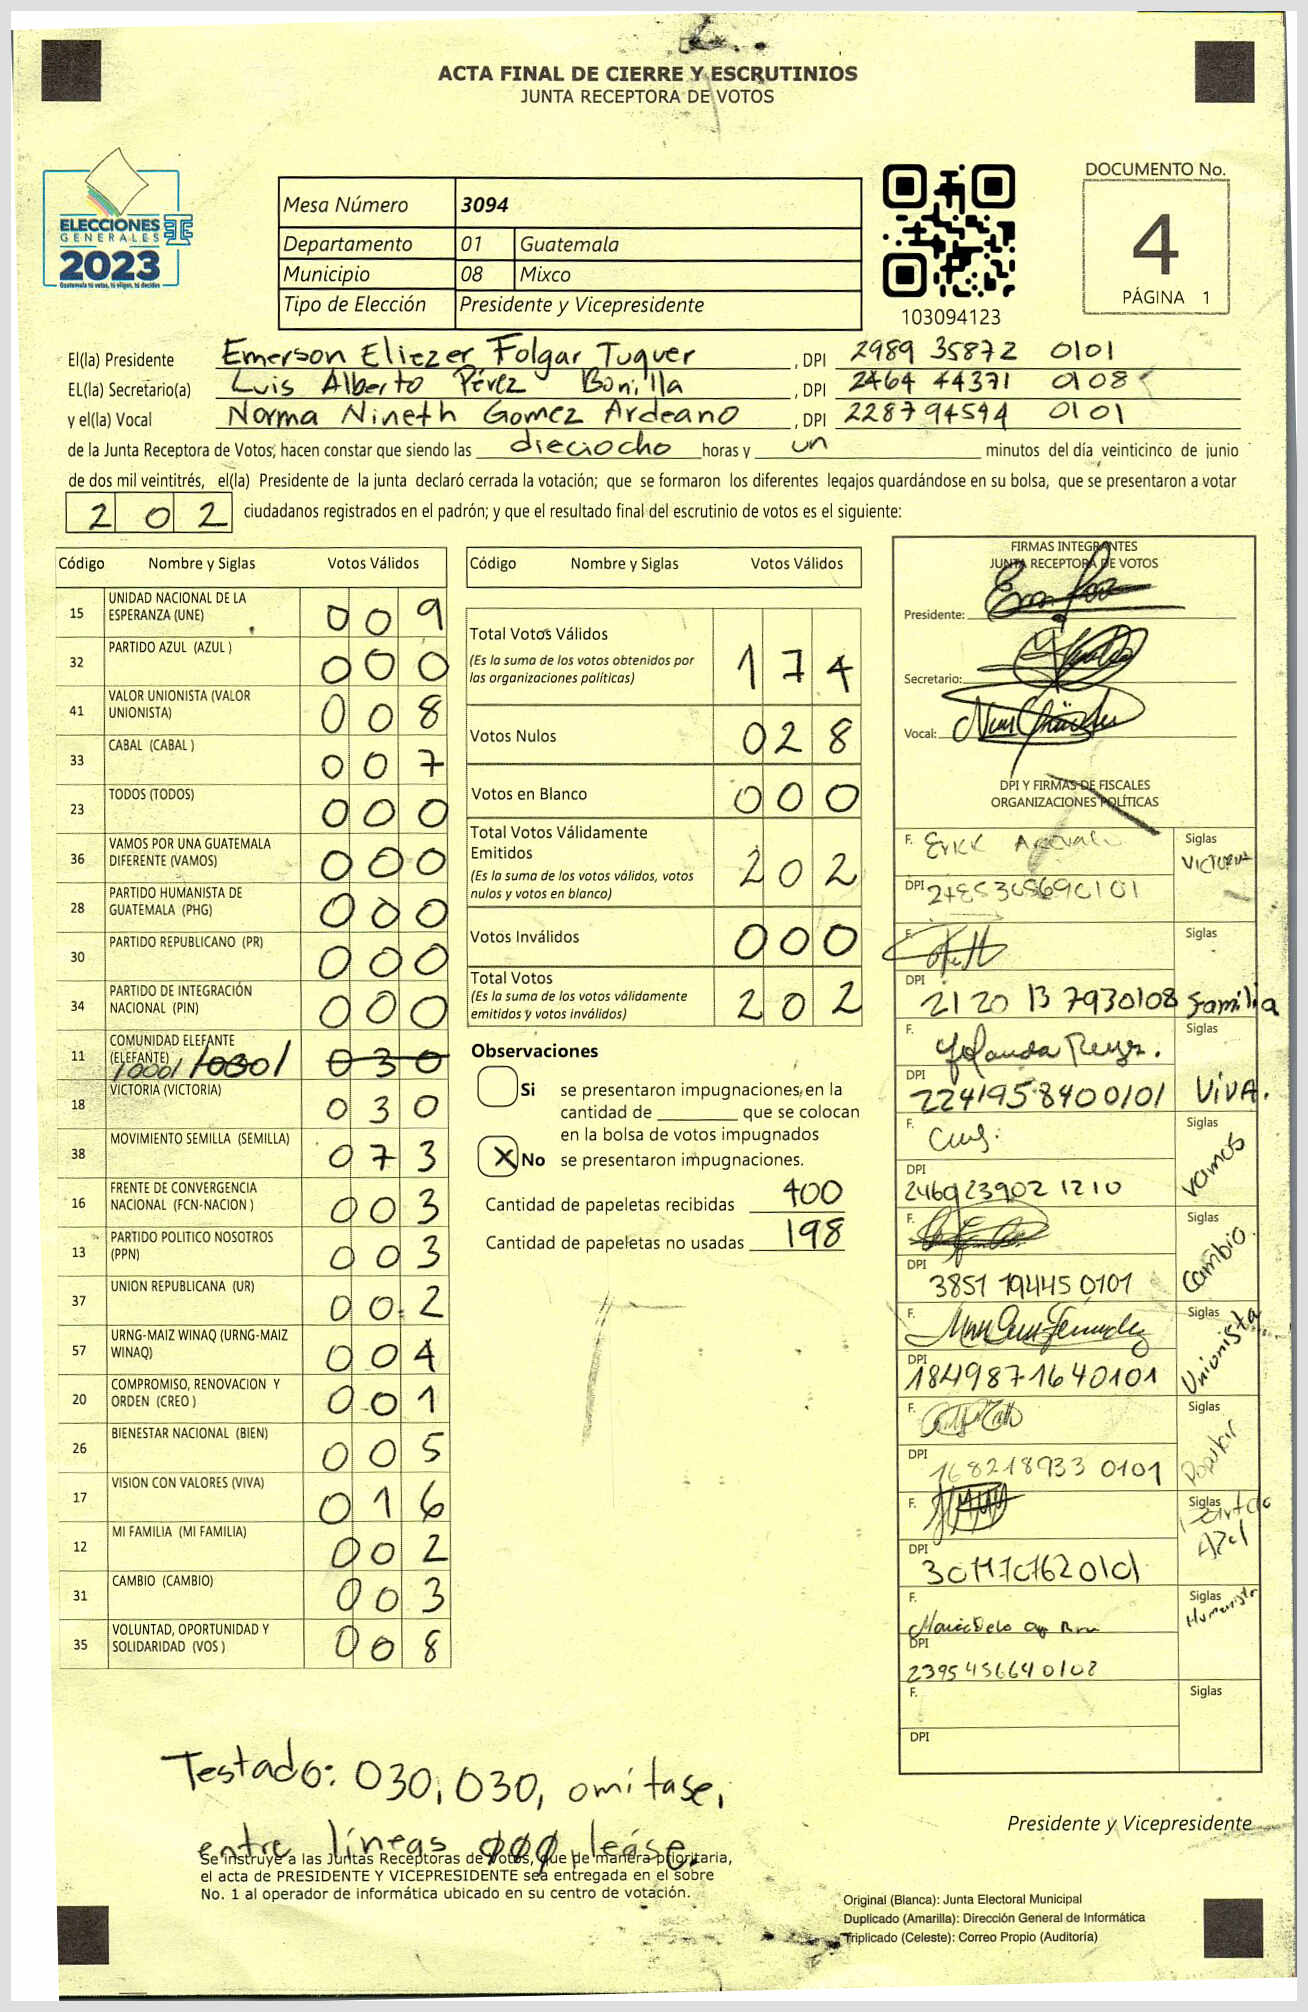 ACTA FINAL DE CIERRE Y ESCRUTINIOS
JUNTA RECEPTORA DE VOTOS
ELECCIONES
GENERALES
2023
Guatemala tú votas, tú eliges, tú decides
Mesa Número 3094
Departamento 01 Guatemala
Municipio 08 Mixco
Tipo de Elección Presidente y Vicepresidente
103094123
DOCUMENTO No.
4
PÁGINA 1
El(la) Presidente Emerson Eliezer Folgar Tuquer, DPI 2989 35872 0101
EL(la) Secretario(a) Luis Alberto Pérez Bonilla, DPI 2464 44371 0108
y el(la) Vocal Norma Nineth Gomez Ardeano, DPI 228794594 0101
de la Junta Receptora de Votos, hacen constar que siendo las dieciocho horas y un minutos del día veinticinco de junio
de dos mil veintitrés, el(la) Presidente de la junta declaró cerrada la votación; que se formaron los diferentes legajos guardándose en su bolsa, que se presentaron a votar
202 ciudadanos registrados en el padrón; y que el resultado final del escrutinio de votos es el siguiente:
Código Nombre y Siglas Votos Válidos
15 UNIDAD NACIONAL DE LA ESPERANZA (UNE) 009
32 PARTIDO AZUL (AZUL ) 000
41 VALOR UNIONISTA (VALOR UNIONISTA) 008
33 CABAL (CABAL ) 007
23 TODOS (TODOS) 000
36 VAMOS POR UNA GUATEMALA DIFERENTE (VAMOS) 000
28 PARTIDO HUMANISTA DE GUATEMALA (PHG) 000
30 PARTIDO REPUBLICANO (PR) 000
34 PARTIDO DE INTEGRACIÓN NACIONAL (PIN) 000
11 COMUNIDAD ELEFANTE (ELEFANTE) 030
18 VICTORIA (VICTORIA) 030
38 MOVIMIENTO SEMILLA (SEMILLA) 073
16 FRENTE DE CONVERGENCIA NACIONAL (FCN-NACION ) 003
13 PARTIDO POLITICO NOSOTROS (PPN) 003
37 UNION REPUBLICANA (UR) 002
57 URNG-MAIZ WINAQ (URNG-MAIZ WINAQ) 004
20 COMPROMISO, RENOVACION Y ORDEN (CREO ) 001
26 BIENESTAR NACIONAL (BIEN) 005
17 VISION CON VALORES (VIVA) 016
12 MI FAMILIA (MI FAMILIA) 002
31 CAMBIO (CAMBIO) 003
35 VOLUNTAD, OPORTUNIDAD Y SOLIDARIDAD (VOS ) 008
Código Nombre y Siglas Votos Válidos
Total Votos Válidos 174
(Es la suma de los votos obtenidos por
las organizaciones políticas)
Votos Nulos 028
Votos en Blanco 000
Total Votos Válidamente
Emitidos 202
(Es la suma de los votos válidos, votos
nulos y votos en blanco)
Votos Inválidos 000
Total Votos 202
(Es la suma de los votos válidamente
emitidos y votos inválidos)
Observaciones
Si se presentaron impugnaciones, en la
cantidad de ________ que se colocan
en la bolsa de votos impugnados
X No se presentaron impugnaciones.
Cantidad de papeletas recibidas 400
Cantidad de papeletas no usadas 198
FIRMAS INTEGRANTES
JUNTA RECEPTORA DE VOTOS
Presidente:
Secretario:
Vocal:
DPI Y FIRMAS DE FISCALES
ORGANIZACIONES POLÍTICAS
F. Erick Siglas
DPI VICTORIA
F. Siglas
DPI 2120 13 7930108 Familia
F. Yolanda Reyes. Siglas
DPI 2241958400101 VIVA.
F. Siglas
DPI 246923902 1210 Vamos
F. Siglas
DPI 3851 19445 0101 Cambio
F. Siglas
DPI 1849871640101 Unionista
F. Siglas
DPI 168218933 0101 Popular
F. Siglas
DPI
F. Siglas
DPI 2395456640102 Humanista
F. Siglas
DPI
Testado: 030, 030, omitase,
entre líneas 000, leáse.
Se instruye a las Juntas Receptoras de Votos, que de manera prioritaria,
el acta de PRESIDENTE Y VICEPRESIDENTE sea entregada en el sobre
No. 1 al operador de informática ubicado en su centro de votación.
Presidente y Vicepresidente
Original (Blanca): Junta Electoral Municipal
Duplicado (Amarilla): Dirección General de Informática
Triplicado (Celeste): Correo Propio (Auditoría)